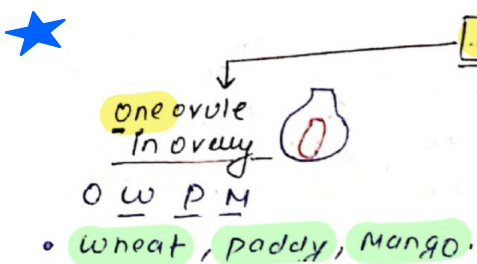 One ovule
In ovary
O W P M
• wheat, paddy, Mango.